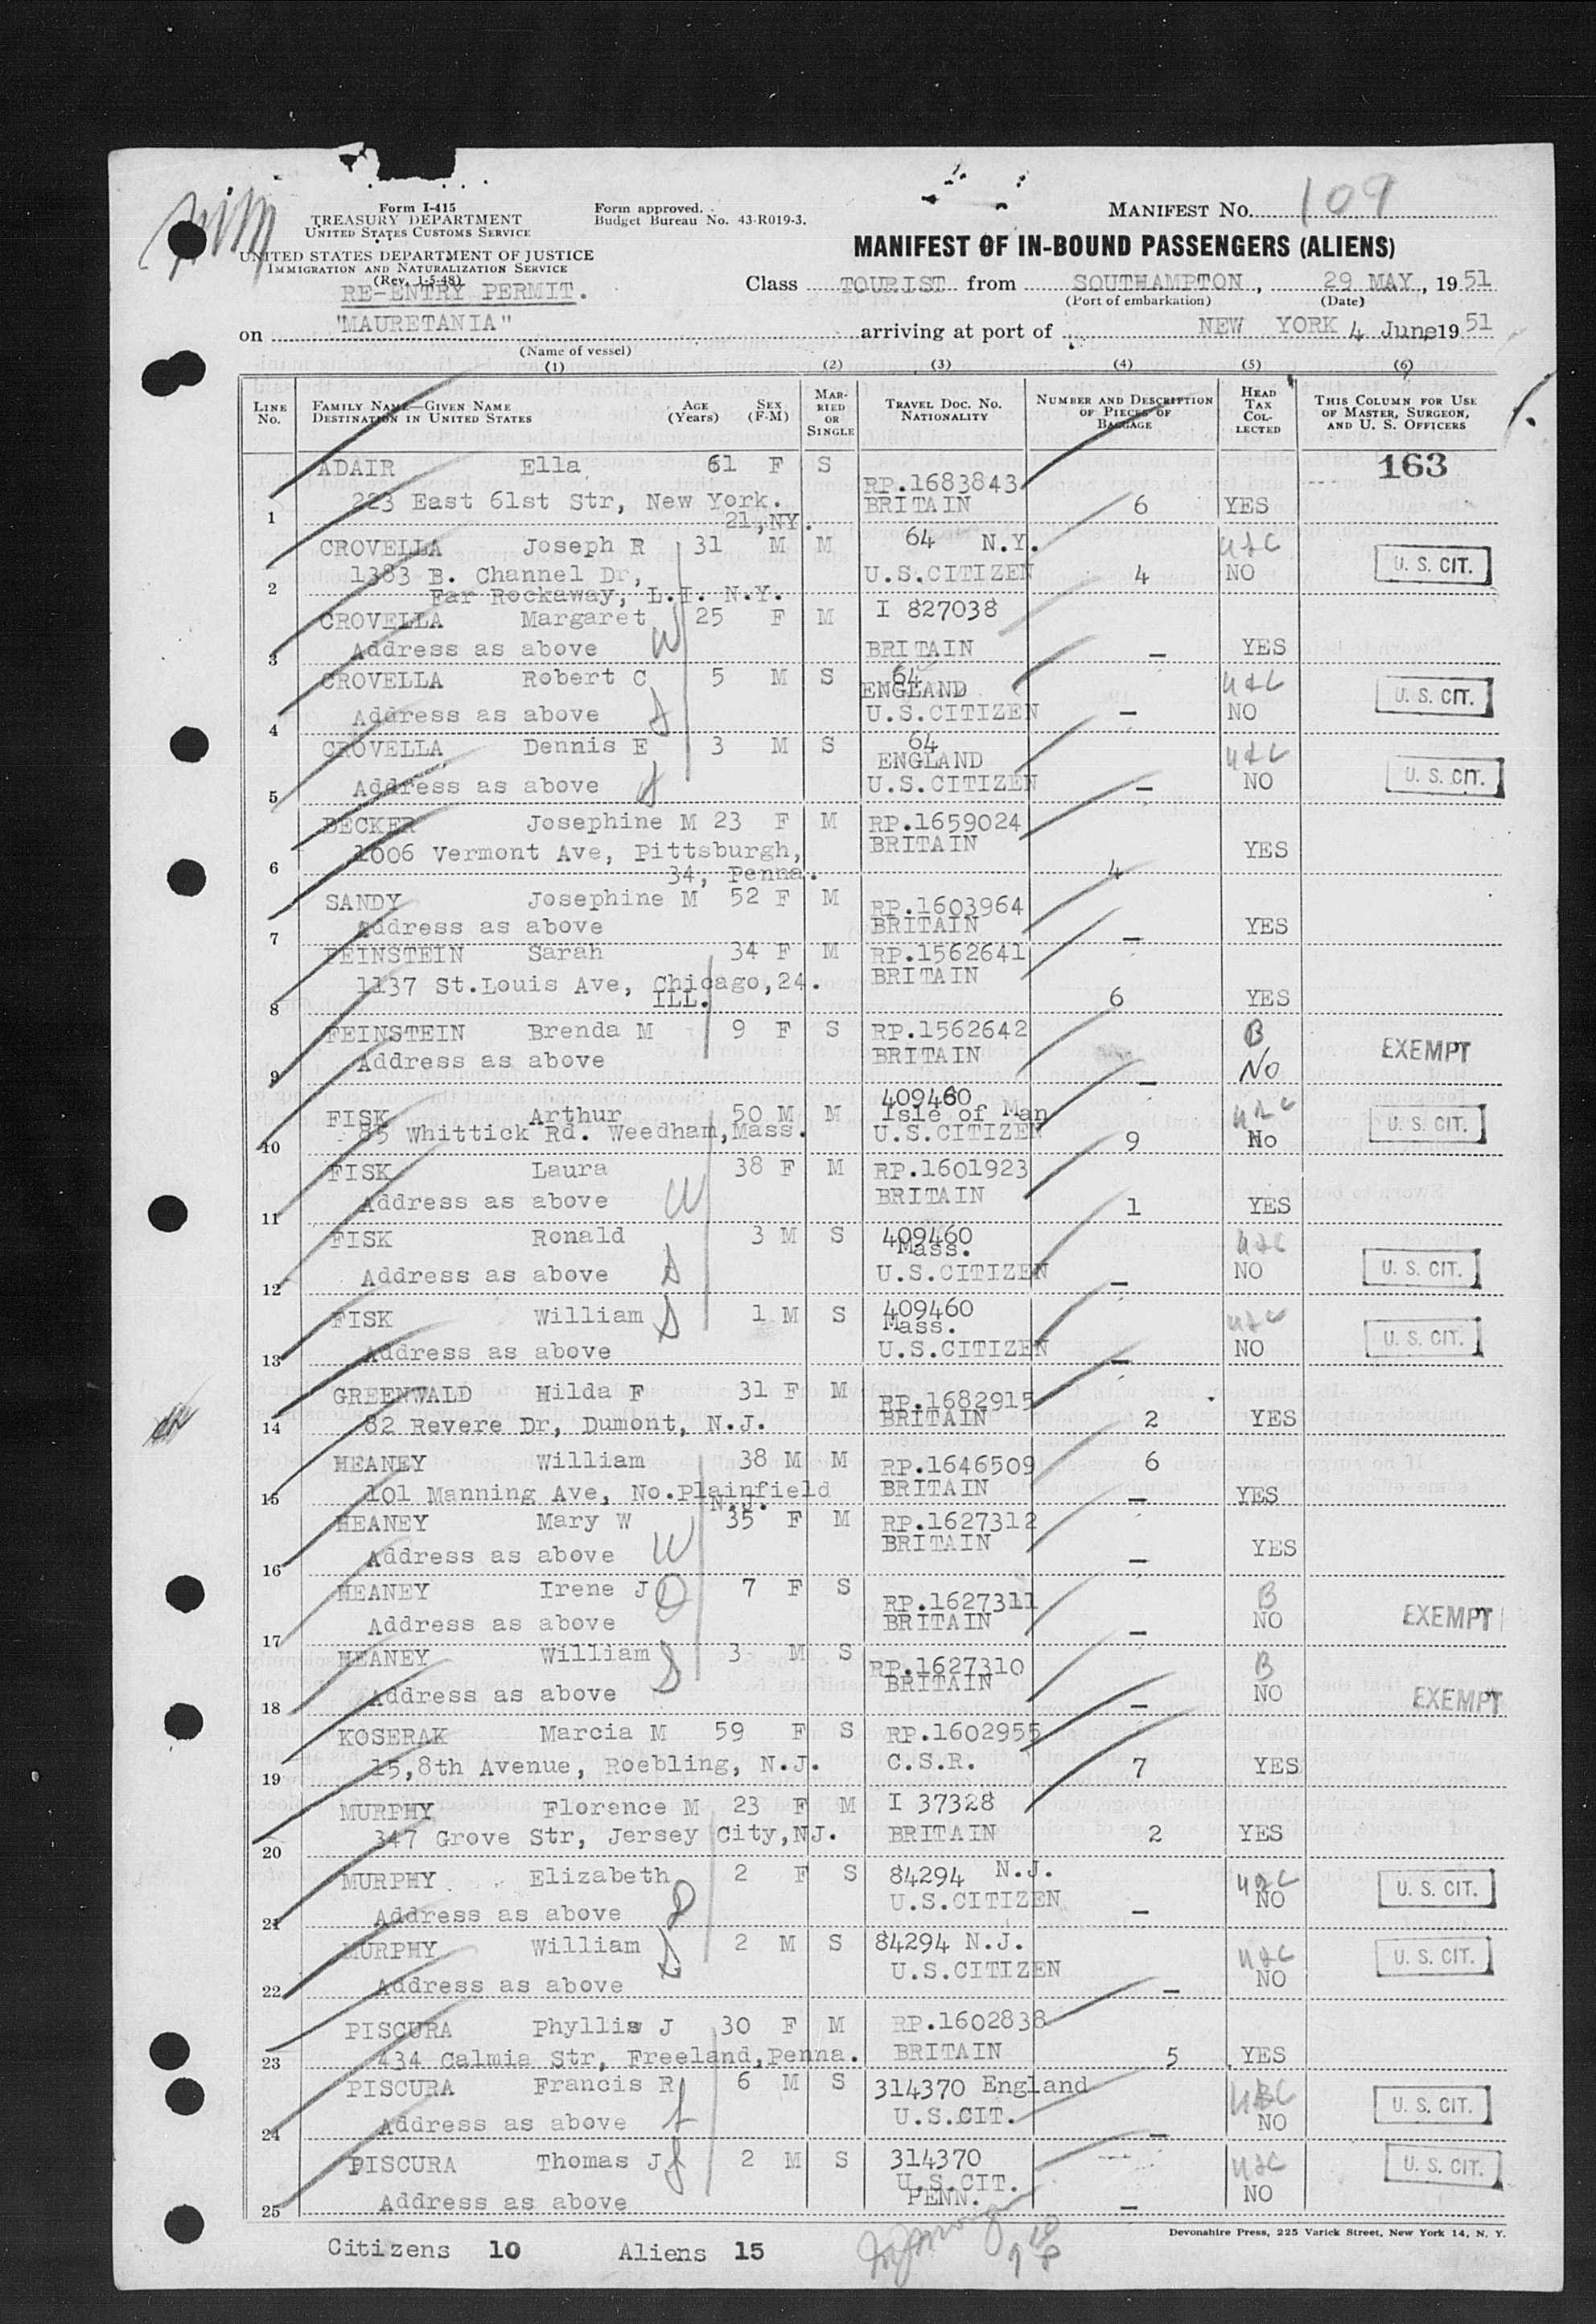 Form I-415
TREASURY DEPARTMENT
UNITED STATES CUSTOMS SERVICE
UNITED STATES DEPARTMENT OF JUSTICE
IMMIGRATION AND NATURALIZATION SERVICE
(Rev. 1-5-48)
RE-ENTRY PERMIT.
Form approved.
Budget Bureau No. 43-R019-3.
MANIFEST NO. 109
MANIFEST OF IN-BOUND PASSENGERS (ALIENS)
Class TOURIST from SOUTHAMPTON, 29 MAY, 1951
(Port of embarkation) (Date)
on "MAURETANIA" arriving at port of NEW YORK 4 June, 1951
(Name of vessel)
(1) (2) (3) (4) (5) (6)
LINE No. FAMILY NAME—GIVEN NAME DESTINATION IN UNITED STATES AGE (Years) SEX (F-M) MARRIED OR SINGLE TRAVEL DOC. NO. NATIONALITY NUMBER AND DESCRIPTION OF PIECES OF BAGGAGE HEAD TAX COLLECTED THIS COLUMN FOR USE OF MASTER, SURGEON, AND U. S. OFFICERS
163
ADAIR Ella 61 F S RP.1683843
1 223 East 61st Str, New York. BRITAIN 6 YES
21, NY.
CROVELLA Joseph R 31 M M 64 N.Y. USC
2 1383 B. Channel Dr, U.S.CITIZEN 4 NO U. S. CIT.
Far Rockaway, L.I. N.Y.
CROVELLA Margaret 25 F M I 827038
3 Address as above W BRITAIN — YES
CROVELLA Robert C 5 M S 64 ENGLAND USC
4 Address as above S U.S.CITIZEN — NO U. S. CIT.
CROVELLA Dennis E 3 M S 64 ENGLAND USC
5 Address as above S U.S.CITIZEN — NO U. S. CIT.
BECKER Josephine M 23 F M RP.1659024
6 1006 Vermont Ave, Pittsburgh, BRITAIN 4 YES
34, Penna.
SANDY Josephine M 52 F M RP.1603964
7 Address as above BRITAIN — YES
FEINSTEIN Sarah 34 F M RP.1562641
8 1137 St.Louis Ave, Chicago,24. BRITAIN 6 YES
ILL.
FEINSTEIN Brenda M 9 F S RP.1562642 B
9 Address as above BRITAIN — No EXEMPT
FISK Arthur 50 M M 409460 Isle of Man USC
10 85 Whittick Rd. Weedham,Mass. U.S.CITIZEN 9 No U. S. CIT.
FISK Laura 38 F M RP.1601923
11 Address as above W BRITAIN 1 YES
FISK Ronald 3 M S 409460 Mass. USC
12 Address as above S U.S.CITIZEN — NO U. S. CIT.
FISK William S 1 M S 409460 Mass. USC
13 Address as above U.S.CITIZEN — NO U. S. CIT.
GREENWALD Hilda F 31 F M RP.1682915
14 82 Revere Dr, Dumont, N.J. BRITAIN 2 YES
HEANEY William 38 M M RP.1646509 6
15 101 Manning Ave, No.Plainfield BRITAIN — YES
N.J.
HEANEY Mary W 35 F M RP.1627312
16 Address as above W BRITAIN — YES
HEANEY Irene J D 7 F S RP.1627311 B
17 Address as above BRITAIN — NO EXEMPT
HEANEY William S 3 M S RP.1627310 B
18 Address as above BRITAIN — NO EXEMPT
KOSERAK Marcia M 59 F S RP.1602955
19 15,8th Avenue, Roebling, N.J. C.S.R. 7 YES
MURPHY Florence M 23 F M I 37328
20 347 Grove Str, Jersey City,NJ. BRITAIN 2 YES
MURPHY Elizabeth 2 F S 84294 N.J. USC
21 Address as above D U.S.CITIZEN — NO U. S. CIT.
MURPHY William S 2 M S 84294 N.J. USC
22 Address as above U.S.CITIZEN — NO U. S. CIT.
PISCURA Phyllis J 30 F M RP.1602838
23 434 Calmia Str, Freeland,Penna. BRITAIN 5 YES
PISCURA Francis R 6 M S 314370 England USC
24 Address as above S U.S.CIT. — NO U. S. CIT.
PISCURA Thomas J S 2 M S 314370 USC
25 Address as above U.S.CIT. PENN. — NO U. S. CIT.
Devonshire Press, 225 Varick Street, New York 14, N. Y.
Citizens 10 Aliens 15